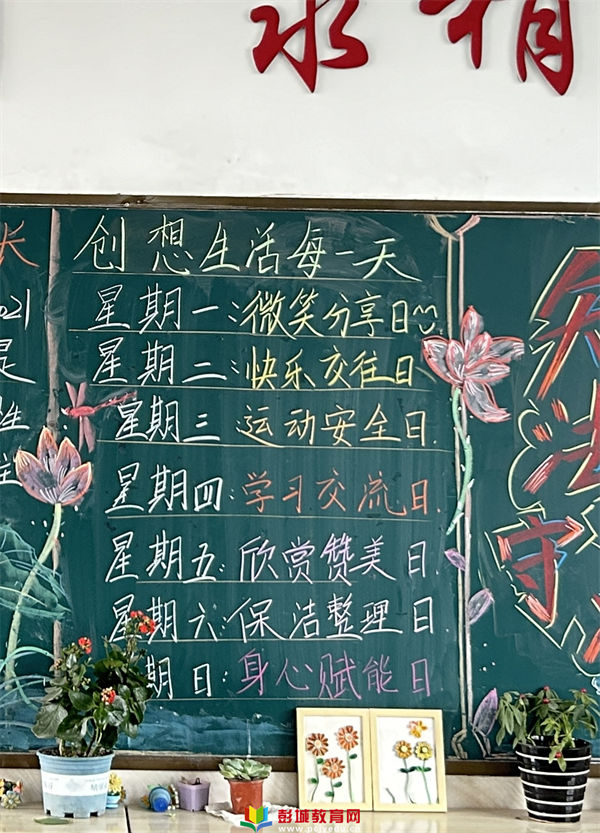 求 精
创想生活每一天
星期一:微笑分享日
星期二:快乐交往日
星期三 运动安全日.
星期四:学习交流日.
星期五:欣赏赞美日.
星期六:保洁整理日
期日:身心赋能日
长
021
是
性
法
守
彭城教育网
www.pcjyedu.cn